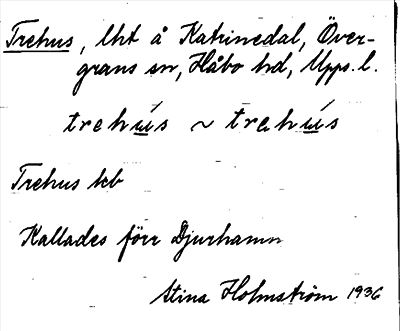 Trehus, lht å Katrinedal, Över-
grans sn, Håbo hd, Upps. l.
trehu̲s ~ trehú̲s
Trehus kb
Kallades förr Djurhamn
Stina Holmström 1936